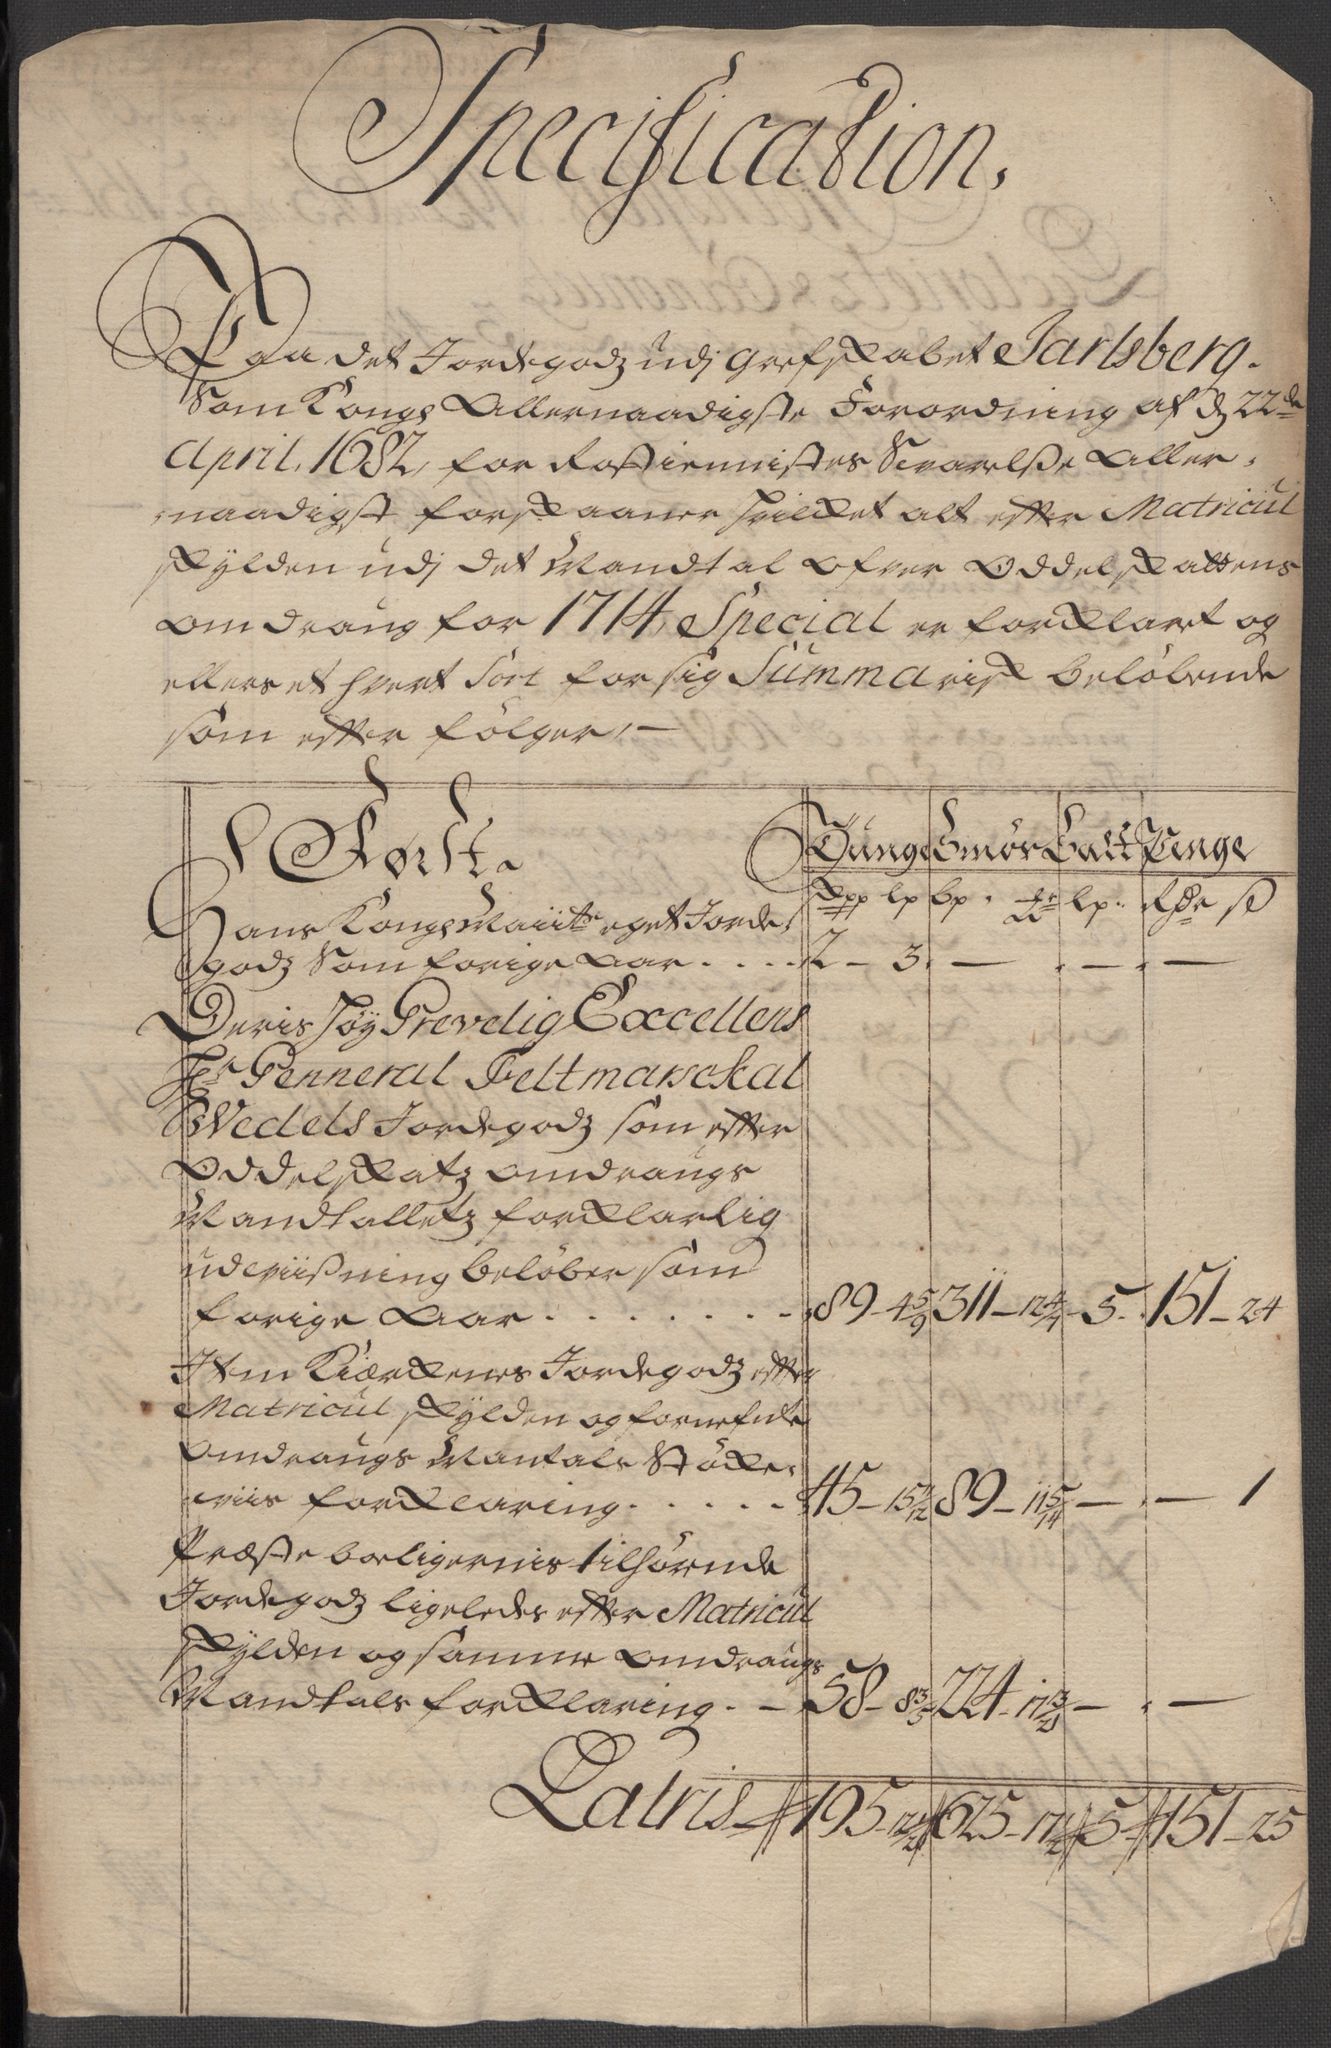 Specification,
Paa det Jordegodz udj Grefskabet Jarlsberg.
Som Kongs Allernaadigste Forordning af d 22de
April, 1682, for Rostiennistes Svarelsse Aller,
naadigst forskaaner hvilket alt efter Matricul
skylden udj det Mandtal Ofver Oddelskattens
omdraug for 1714, Special er forklaret og
ellers et hvert Sort for sig Summarisk beløbende
som efter følger, —
Først.
Tunge Smør Salt Penge
Skpp lp bp. lp. Rdr ß
Hans Kongs Maiits eget Jorde,
godz Som forige Aar . . . . 2 – 3. — . — . —
Deris Høy Grevelig Excellens
Hr Genneral Feltmarsckal
Wedels Jordegodz som efter
Oddelskatz omdraugs
Mandtalletz forklarlig
udviissning beløber som
forige Aar . . . . . . . 89 – 4 5/9 311 – 12 4/7 – 5. 151 – 24
Item Kiærkenes Jordegodz efter
Matricul skylden og fornefnte
omdraugs Mantals Støcke,
viis forklaring . . . . . 45 – 15 7/12 89 – 11 5/14 — . — 1
Præste boeligernis tilhørende
Jordegodz ligeledes efter Matricul
skylden og samme omdraugs
Mandtals forklaring . – 58 – 8 3/5 224 – 17 — . —
Latris 195 – 625 – 17 5 – 151 – 25